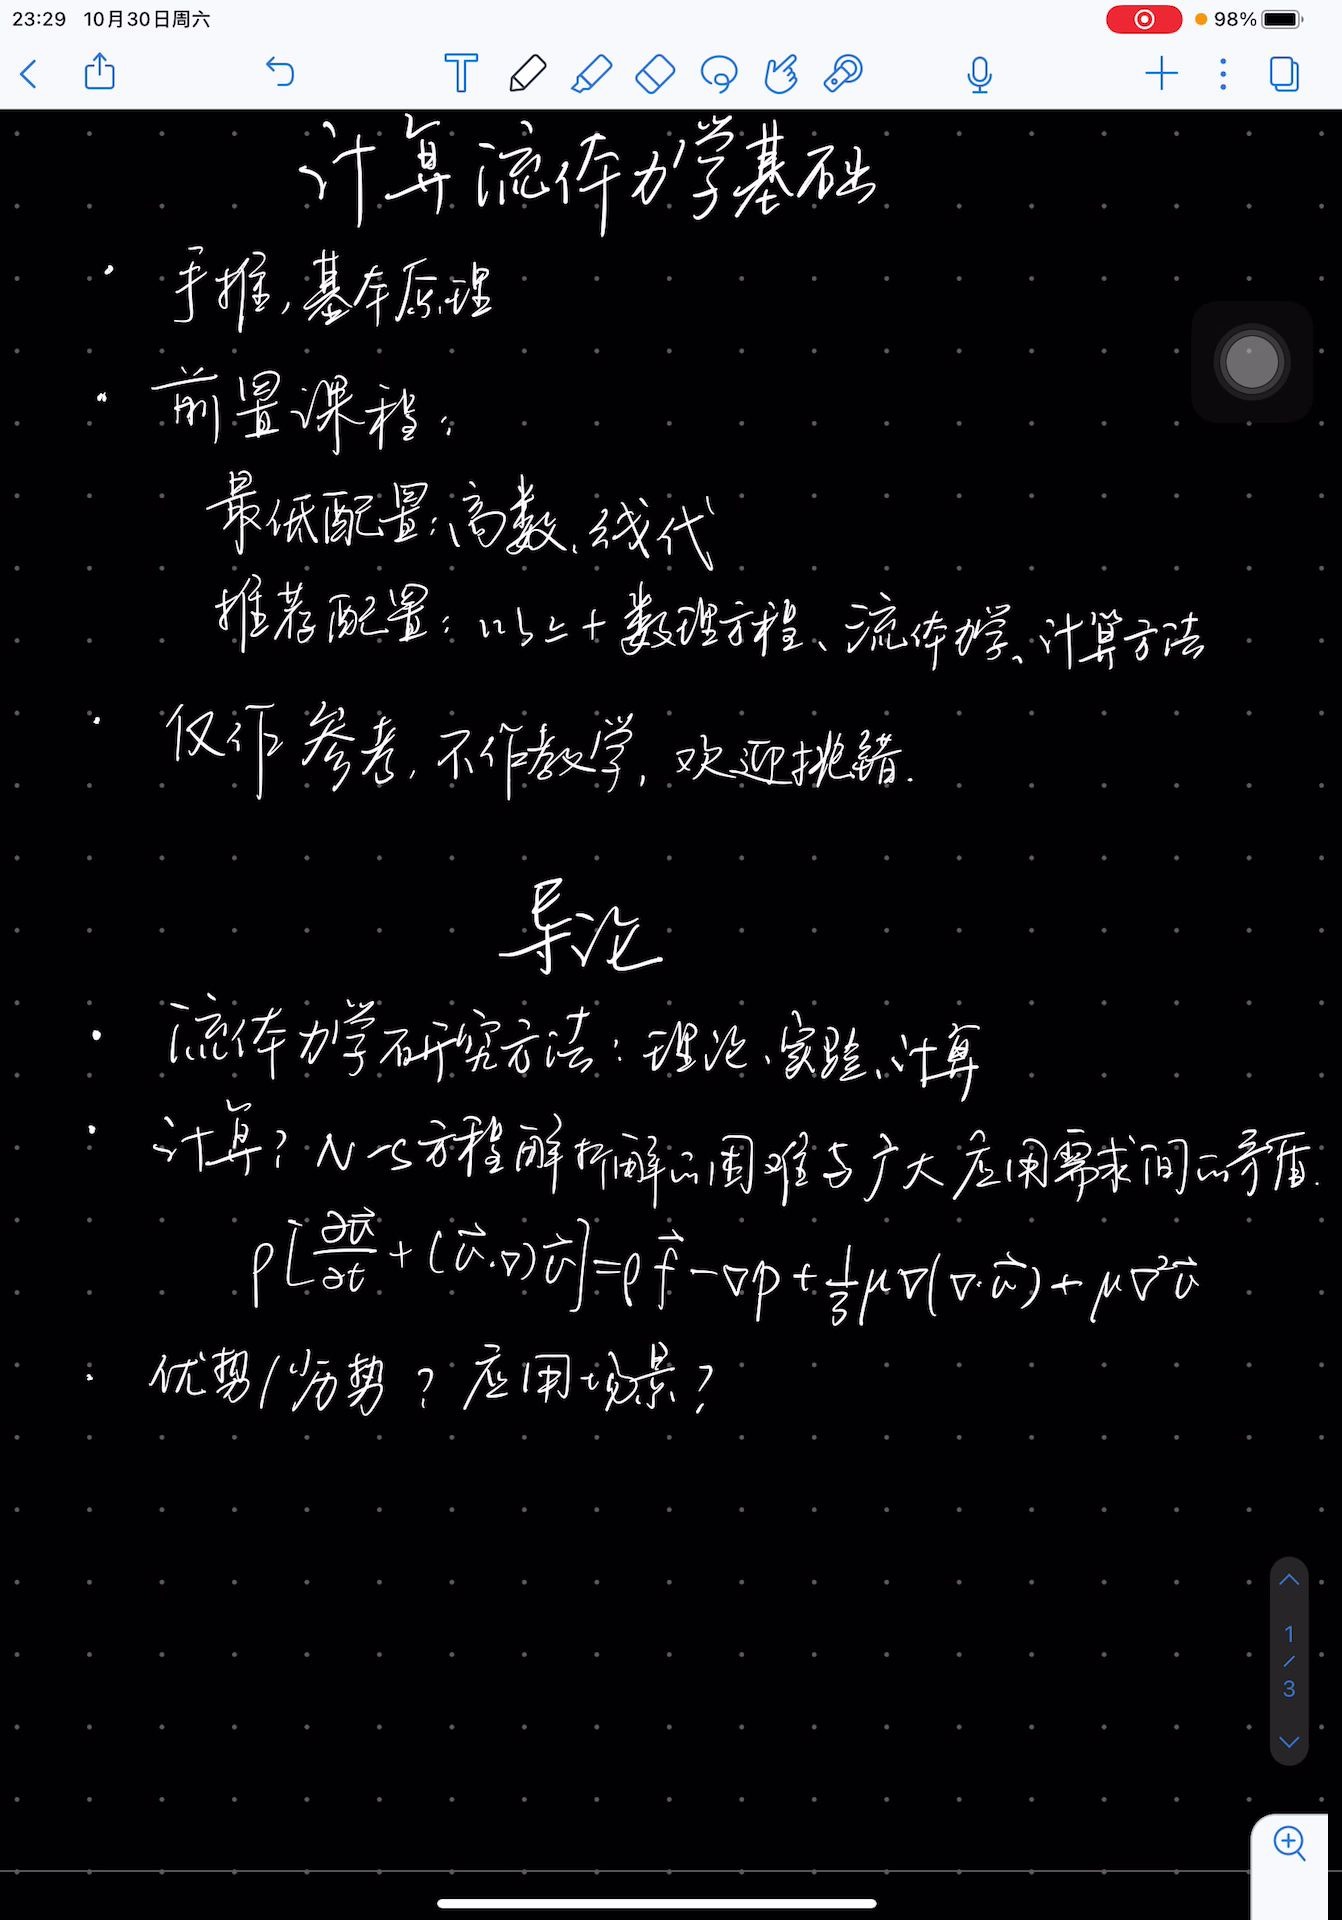 23:29 10月30日周六 98%
计算流体力学基础
· 手推,基本原理
· 前置课程:
最低配置:高数、线代
推荐配置:以上+数理方程、流体力学、计算方法
· 仅作参考,不作教学,欢迎挑错.
导论
· 流体力学研究方法:理论、实验、计算
· 计算? N-S方程解析解的困难与广大应用需求间的矛盾.
ρ[∂u⃗/∂t + (u⃗·∇)u⃗]=ρf⃗ - ∇p + 1/3 μ∇(∇·u⃗) + μ∇²u⃗
· 优势/劣势? 应用场景?
1
/
3